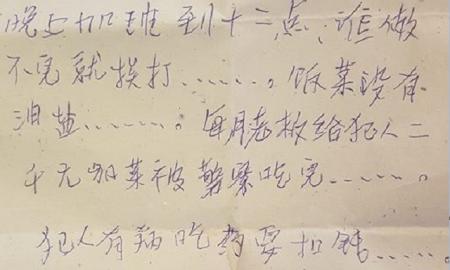 晚上加班到十二点、谁做
不完就挨打……。饭菜没有
油盐……。每月老板给犯人二
千元加菜被警察吃完……。
犯人有病吃药要扣钱……。